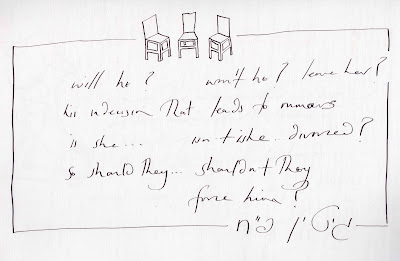 will he? won't he? leave her?
his indecision that leads to rumours
is she... isn't she.. divorced?
so should they... shouldn't they
force him?
גיטין פ"ח